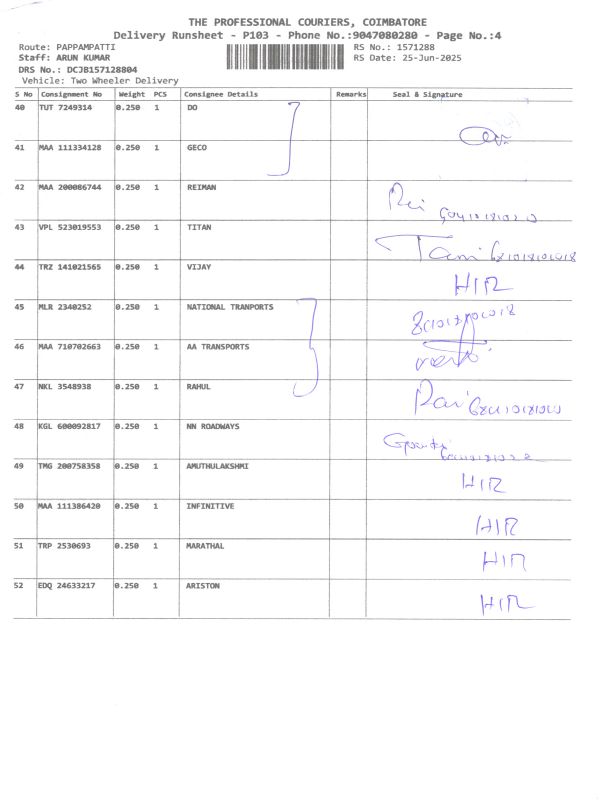 THE PROFESSIONAL COURIERS, COIMBATORE
Delivery Runsheet - P103 - Phone No.:9047080280 - Page No.:4
Route: PAPPAMPATTI RS No.: 1571288
Staff: ARUN KUMAR RS Date: 25-Jun-2025
DRS No.: DCJB157128804
Vehicle: Two Wheeler Delivery
S No Consignment No Weight PCS Consignee Details Remarks Seal & Signature
40 TUT 7249314 0.250 1 DO
41 MAA 111334128 0.250 1 GECO
42 MAA 200086744 0.250 1 REIMAN
Rei
43 VPL 523019553 0.250 1 TITAN
44 TRZ 141021565 0.250 1 VIJAY
HIR
45 MLR 2340252 0.250 1 NATIONAL TRANPORTS
46 MAA 710702663 0.250 1 AA TRANSPORTS
47 NKL 3548938 0.250 1 RAHUL
48 KGL 600092817 0.250 1 NN ROADWAYS
49 TMG 200758358 0.250 1 AMUTHULAKSHMI
HIR
50 MAA 111386420 0.250 1 INFINITIVE
HIR
51 TRP 2530693 0.250 1 MARATHAL
HIR
52 EDQ 24633217 0.250 1 ARISTON
HIR